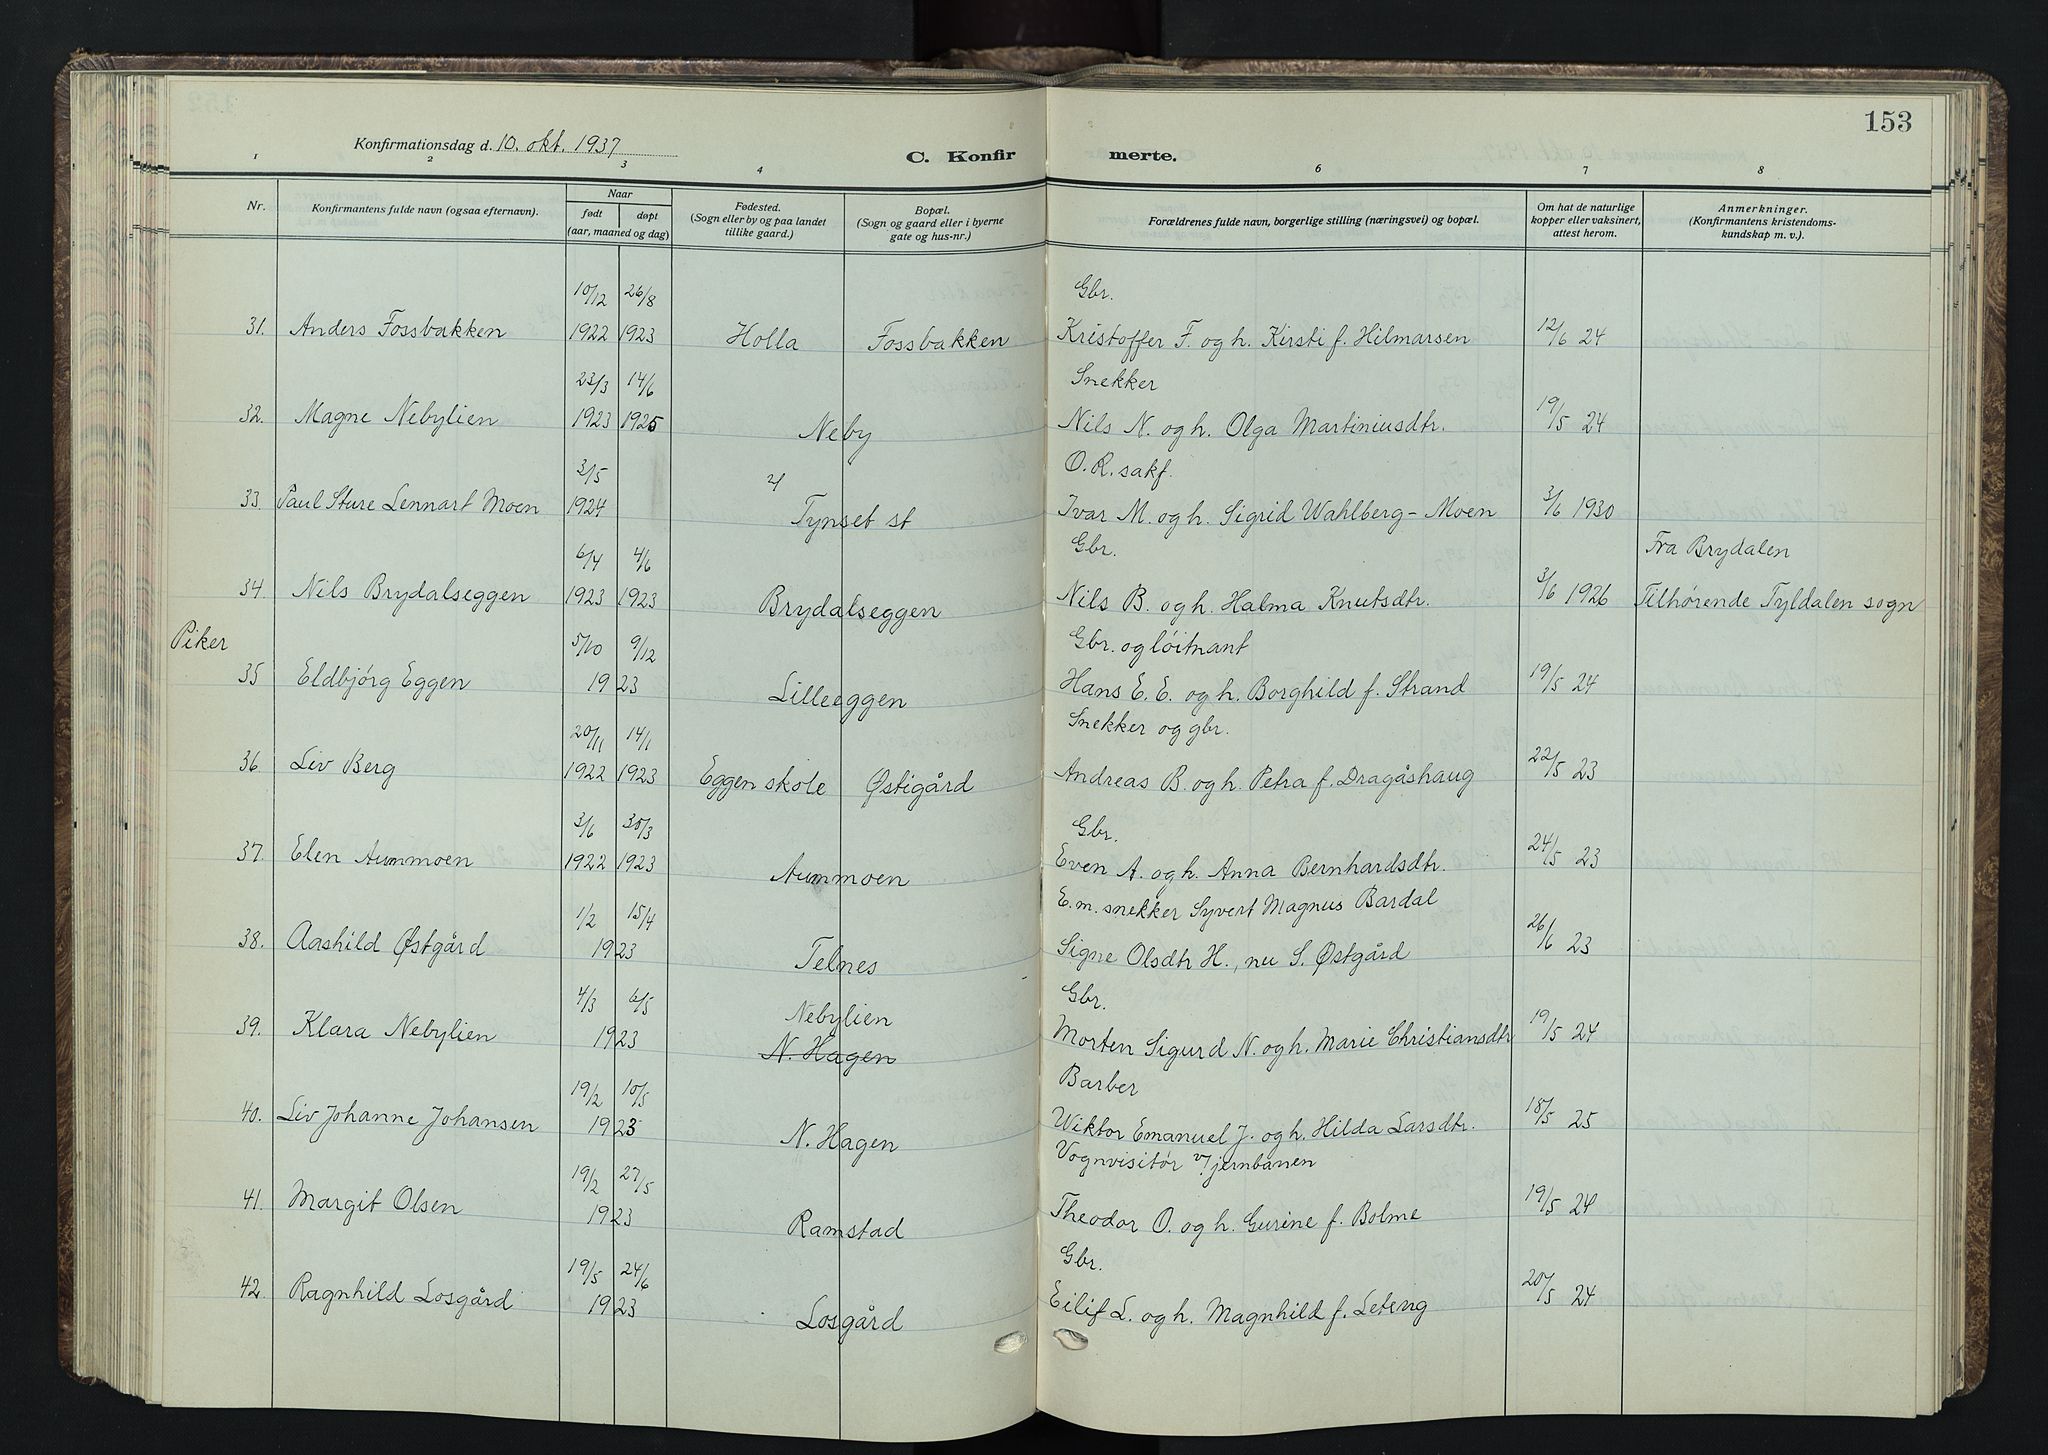 153
Konfirmationsdag d. 10. okt. 1937
C. Konfirmerte.
1 2 3 4 6 7 8
Nr.
Konfirmantens fulde navn (ogsaa efternavn).
Naar
født døpt
(aar, maaned og dag)
Fødested.
(Sogn eller by og paa landet
tillike gaard.)
Bopæl.
(Sogn og gaard eller i byerne
gate og hus-nr.)
Forældrenes fulde navn, borgerlige stilling (næringsvei) og bopæl.
Om hat de naturlige
kopper eller vaksinert,
attest herom.
Anmerkninger.
(Konfirmantens kristendoms-
kundskap m. v.).
10/12 26/8 Gbr.
31. Anders Fossbakken 1922 1923 Holla Fossbakken Kristoffer F. og h. Kirsti f. Hilmarsen 12/6 24
23/3 14/6 Snekker
32. Magne Nebylien 1923 1925 Neby Nils N. og h. Olga Martiniusdtr. 19/5 24
3/5 O.R. sakf.
33. Paul Sture Lennart Moen 1924 Tynset st Ivar M. og h. Sigrid Wahlberg-Moen 3/6 1930
6/4 4/6 Gbr. Fra Brydalen
34. Nils Brydalseggen 1923 1923 Brydalseggen Nils B. og h. Halma Knutsdtr. 3/6 1926 Tilhørende Tyldalen sogn
Piker 5/10 9/12 Gbr. og løitnant
35 Eldbjørg Eggen 1923 Lilleeggen Hans E. E. og h. Borghild f. Strand 19/5 24
20/11 14/1 Snekker og gbr.
36. Liv Berg 1922 1923 Eggen skole Østigård Andreas B. og h. Petra f. Dragåshaug 22/5 23
3/6 30/3 Gbr.
37. Elen Aummoen 1922 1923 Aummoen Even A. og h. Anna Bernhardsdtr. 24/5 23
1/2 15/4 E.m. snekker Syvert Magnus Bardal
38. Aashild Østgård 1923 Telnes Signe Olsdtr H., nu S. Østgård 26/6 23
4/3 6/5 Nebylien Gbr.
39. Klara Nebylien 1923 N. Hagen Morten Sigurd N. og h. Marie Christiansdtr 19/5 24
19/2 10/5 Barber
40. Liv Johanne Johansen 1923 N. Hagen Wiktor Emanuel J. og h. Hilda Larsdtr. 18/5 25
19/2 27/5 Vognvisitør v/jernbanen
41. Margit Olsen 1923 Ramstad Theodor O. og h. Gurine f. Bolme 19/5 24
19/5 24/6 Gbr.
42. Ragnhild Losgård 1923 Losgård Eilif L. og h. Magnhild f. Leteng 20/5 24